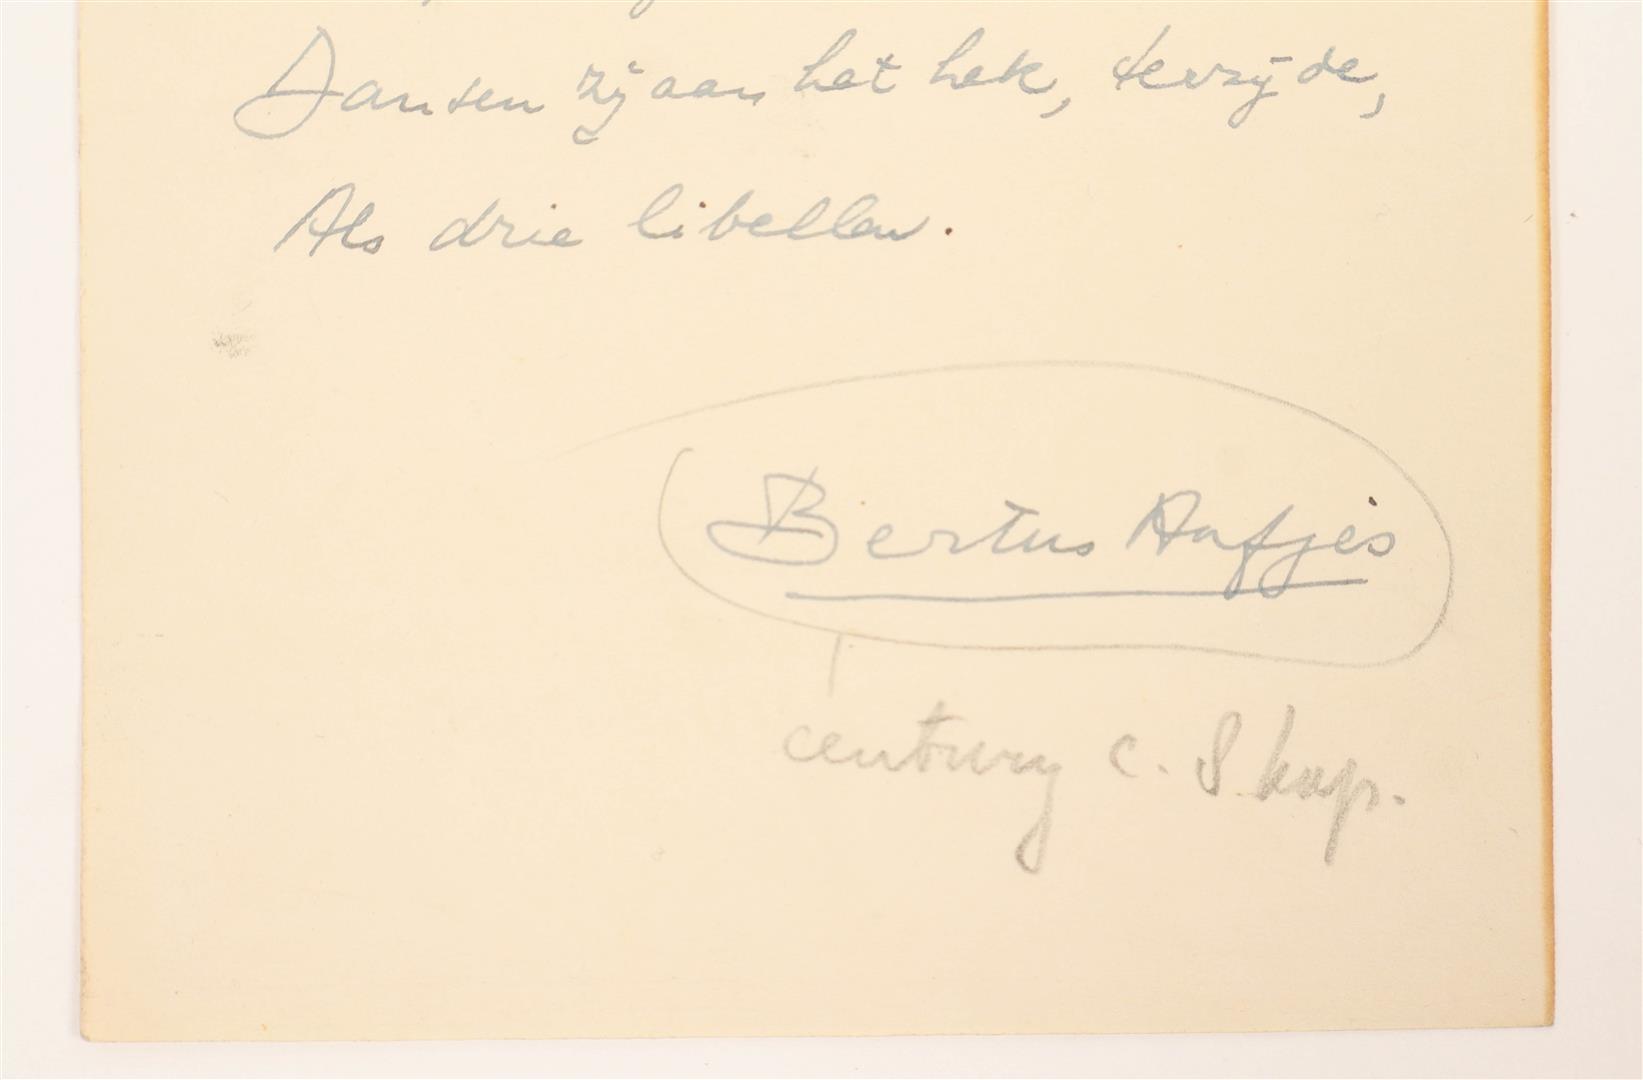 Dansen zij aan het hek, terzijde,
Als drie libellen.
Bertus Aafjes
century c. 8 kap.